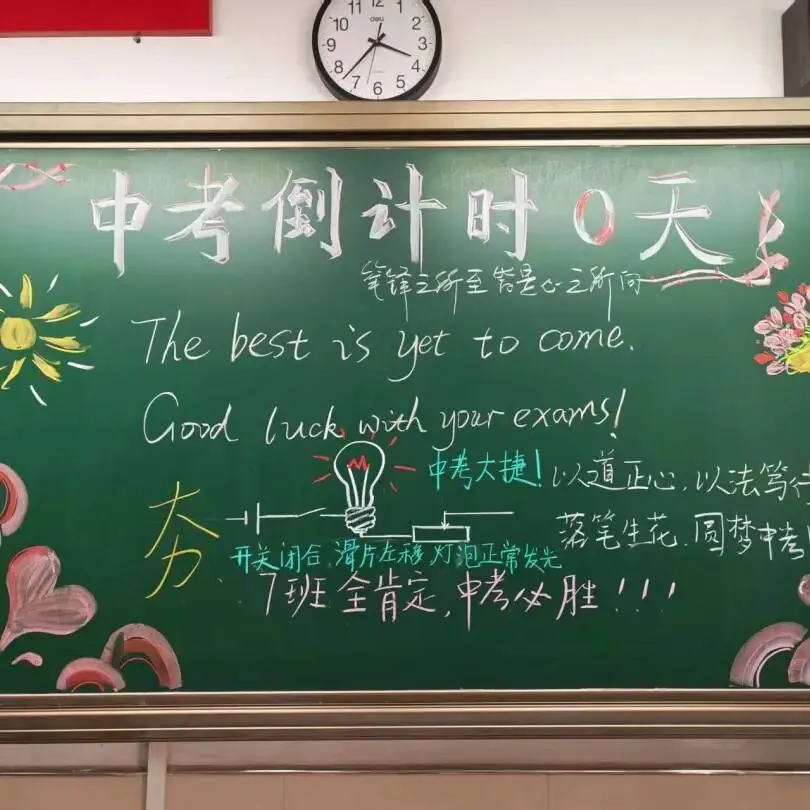 12
1
2
3
4
5
6
7
8
9
10
11
deli
中考倒计时0天
笔锋之所至皆是心之所向
The best is yet to come.
Good luck with your exams!
中考大捷!
以道正心,以法笃行
落笔生花,圆梦中考
夯
开关闭合,滑片左移,灯泡正常发光
7班全肯定,中考必胜!!!